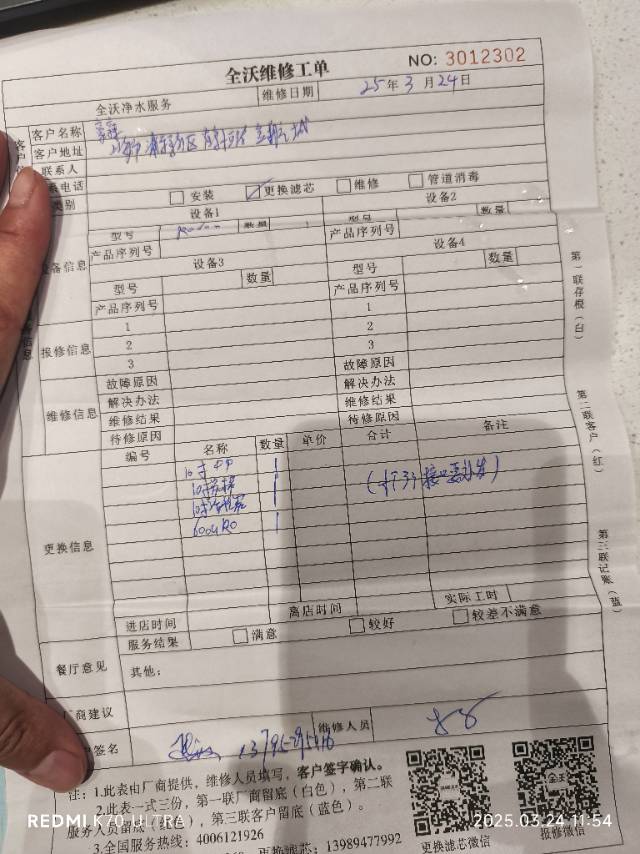 全沃维修工单
NO: 3012302
全沃净水服务 维修日期 25年3月24日
客户名称
客户地址
联系人
电话
类别 安装 更换滤芯 维修 管道消毒
设备1 设备2
型号 数量 型号 数量
产品序列号 产品序列号
设备3 设备4
型号 数量 型号 数量
产品序列号 产品序列号
设备信息
报修信息
1 1
2 2
3 3
维修信息
故障原因 故障原因
解决办法 解决办法
维修结果 维修结果
待修原因 待修原因
编号 名称 数量 单价 合计 备注
10寸PP 1
10寸 1
10寸 1
600G RO 1
更换信息
进店时间 离店时间 实际工时
服务结果 满意 较好 较差不满意
餐厅意见 其他:
厂商建议
签名 维修人员
注:1.此表由厂商提供,维修人员填写,客户签字确认。
2.此表一式三份,第一联厂商留底(白色),第二联
服务人员留底(红色),第三联客户留底(蓝色)。
3.全国服务热线:4006121926
更换滤芯:13989477992
更换滤芯微信 报修微信
第一联存根(白)
第二联客户(红)
第三联记账(蓝)
REDMI K70 ULTRA
2025.03.24 11:54